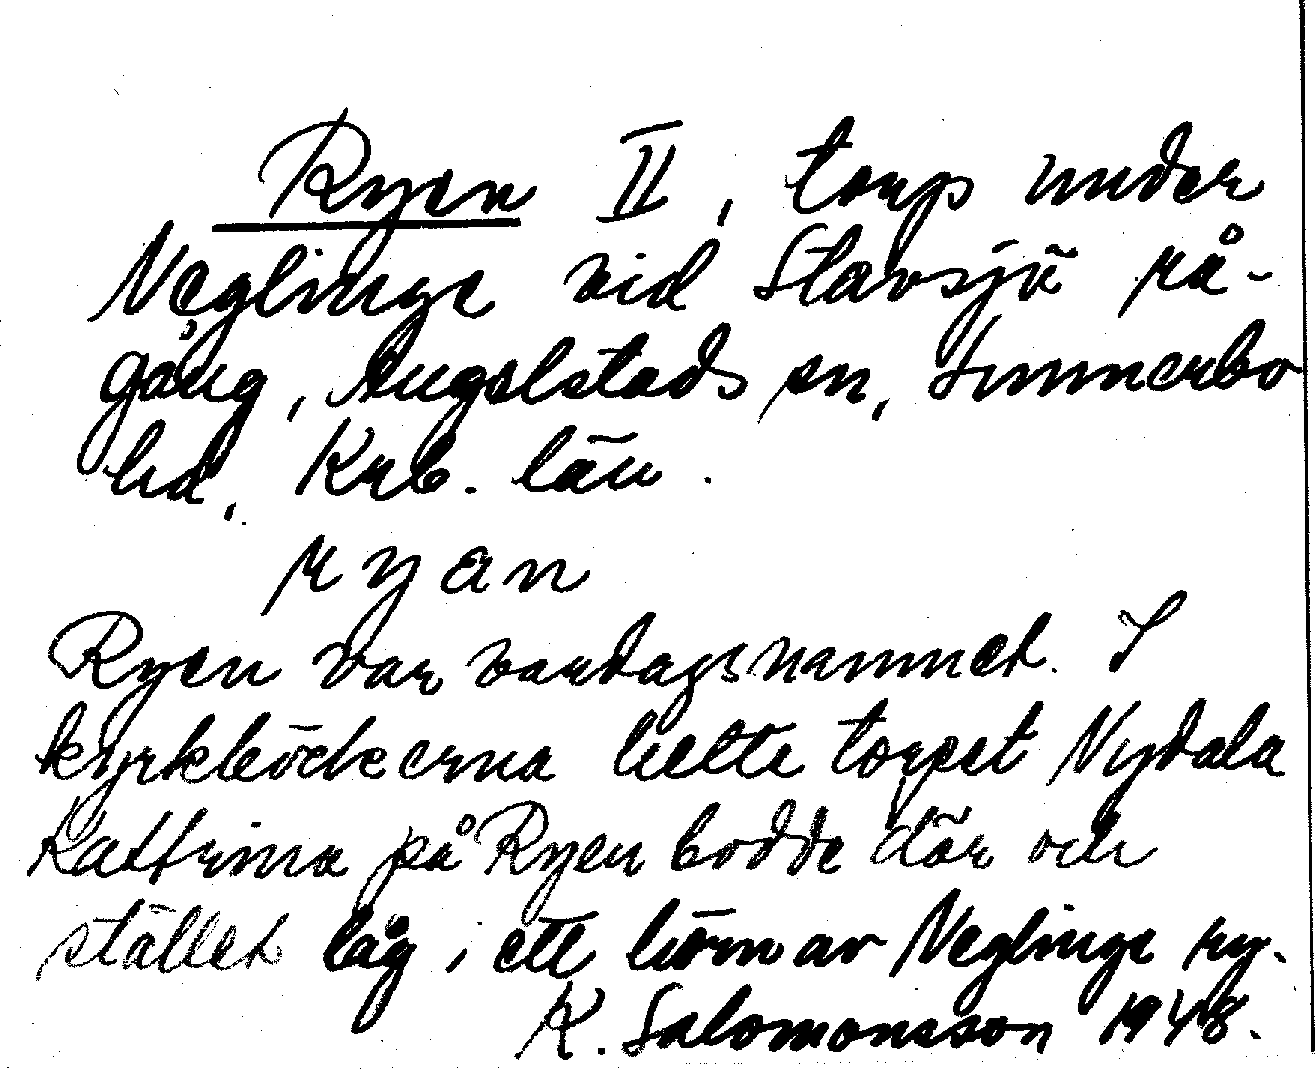 Ryen II, torp under
Neglinge vid Slavsjö rå-
gång, Angelstads sn, Sunnerbo
hd, Krb. län.
ryan
Ryen var vardagsnamnet. I
kyrkböckerna hette torpet Nydala
Kattrina på Ryen bodde där och
stället låg i ett hörn av Neglinge ry.
K. Salomonsson 1948.